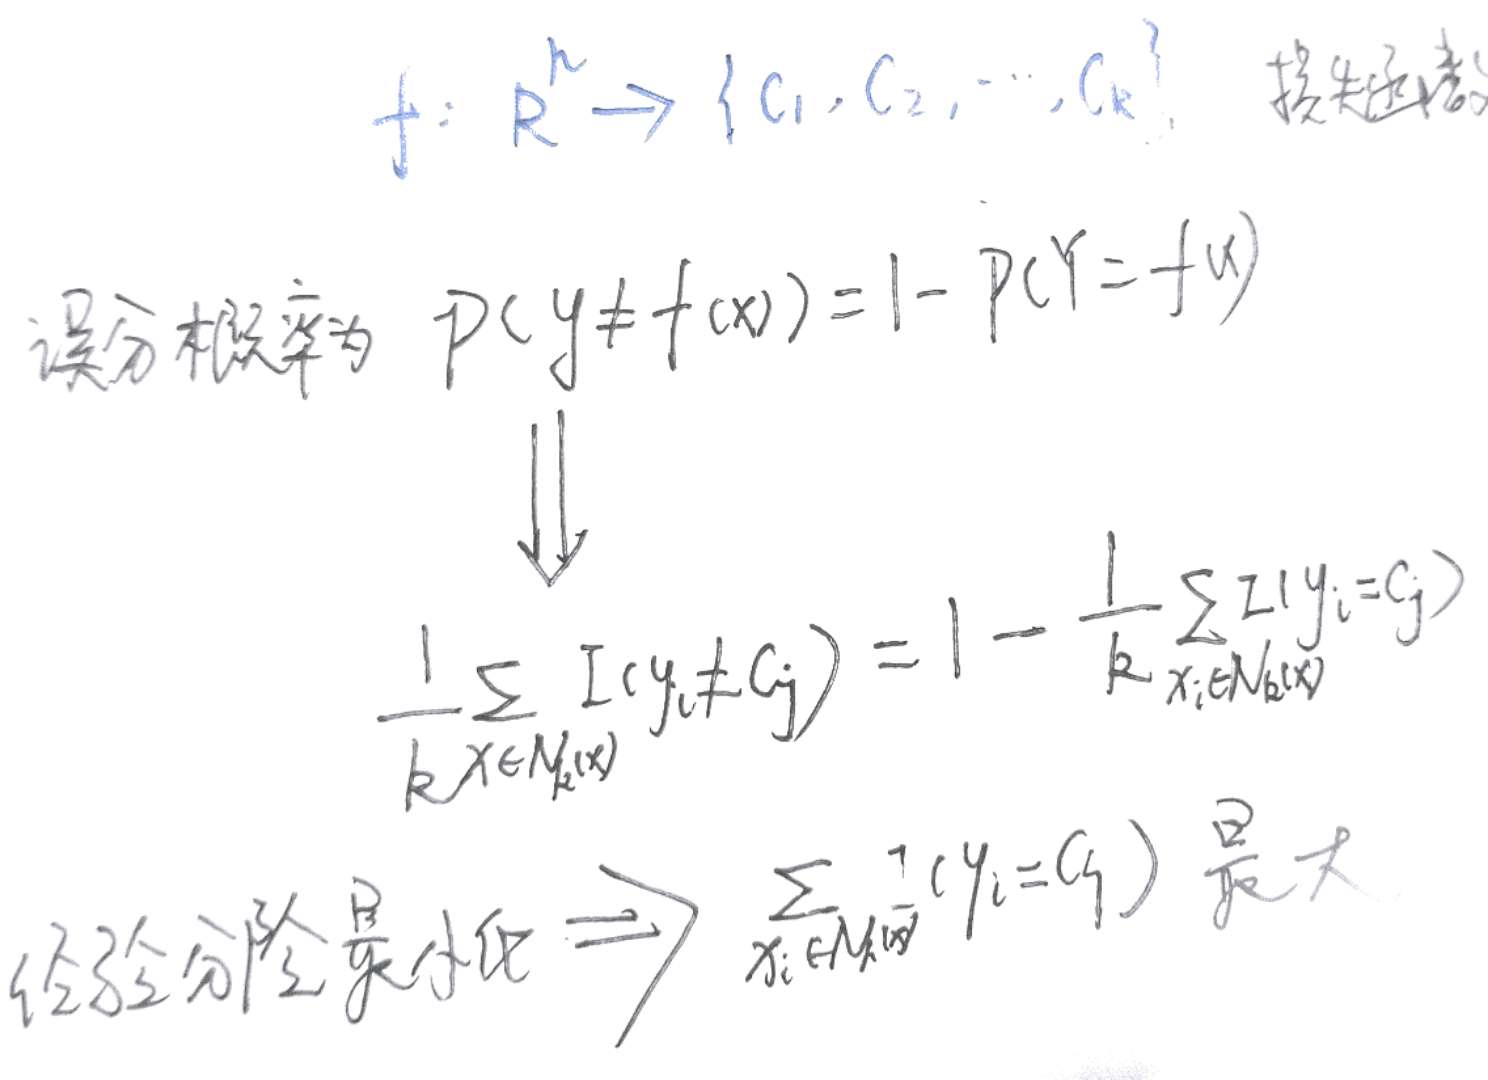 f: R^n → {C_1, C_2, ..., C_k}. 损失函数
误分概率为 P(y≠f(x)) = 1 - P(Y=f(x)
⇓
\frac{1}{k} \sum_{x∈N_k(x)} I(y_i≠C_j) = 1 - \frac{1}{k} \sum_{x_i∈N_k(x)} I(y_i=C_j)
经验分险最小化 ⇒ \sum_{x_i∈N_k(x)} I(y_i=C_j) 最大